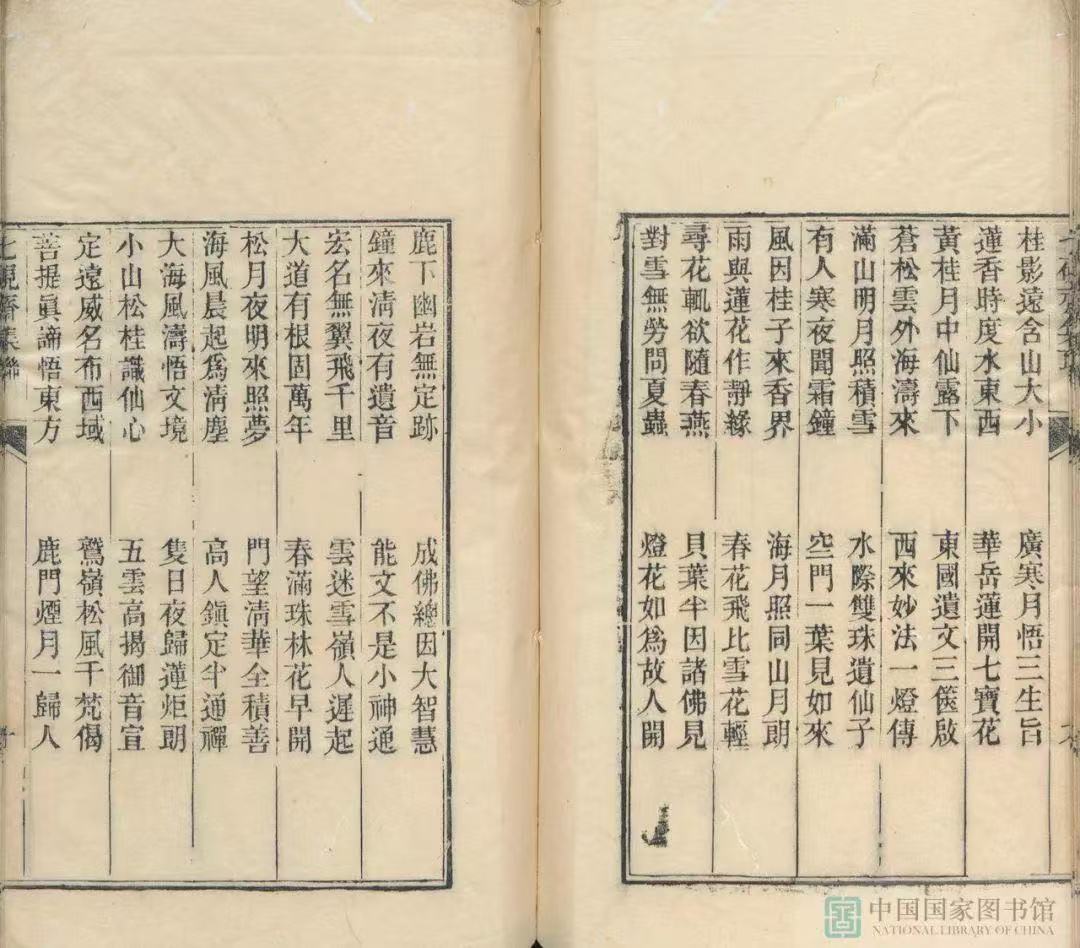 桂影遠含山大小　廣寒月悟三生旨
蓮香時度水東西　華岳蓮開七寶花
黃桂月中仙露下　東國遺文三篋啟
蒼松雲外海濤來　西來妙法一燈傳
滿山明月照積雪　水際雙珠遺仙子
有人寒夜聞霜鐘　空門一葉見如來
風因桂子來香界　海月照同山月朗
雨與蓮花作靜緣　春花飛比雪花輕
尋花輒欲隨春燕　貝葉半因諸佛見
對雪無勞問夏蟲　燈花如為故人開
鹿下幽岩無定跡　成佛總因大智慧
鐘來淸夜有遺音　能文不是小神通
宏名無翼飛千里　雲迷雪嶺人遲起
大道有根固萬年　春滿珠林花早開
松月夜明來照夢　門望淸華全積善
海風晨起爲淸塵　高人鎭定半通禪
大海風濤悟文境　隻日夜歸蓮炬朗
小山松桂識仙心　五雲高揭御音宣
定遠威名布西域　鷲嶺松風千梵偈
菩提眞諦悟東方　鹿門煙月一歸人
集聯
中国国家图书馆
NATIONAL LIBRARY OF CHINA